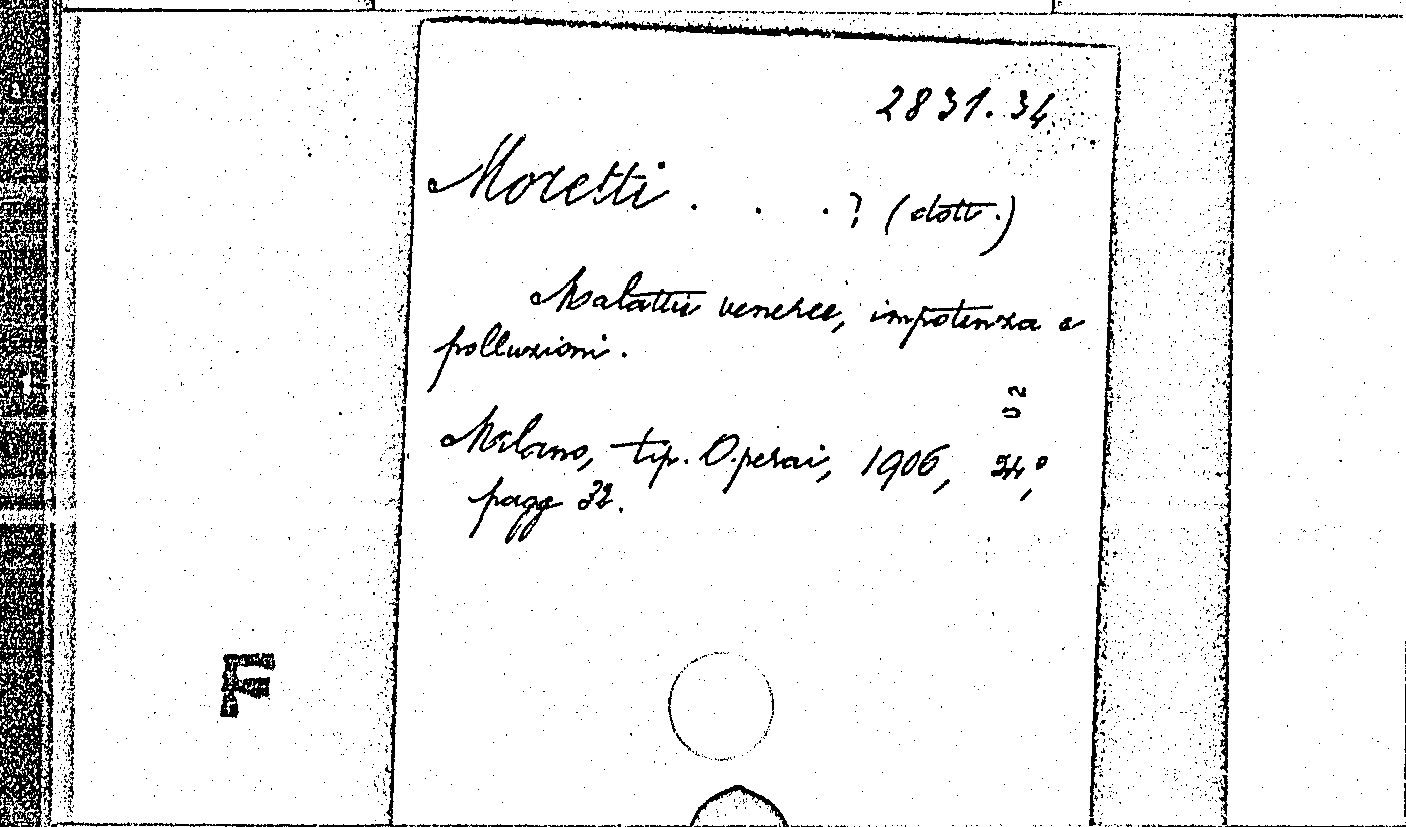 2831.34
Moretti . . . ? (dott.)
Malattie veneree, impotenza e
polluzioni.
Milano, tip. Operai, 1906, 24°,
pagg 32.
F